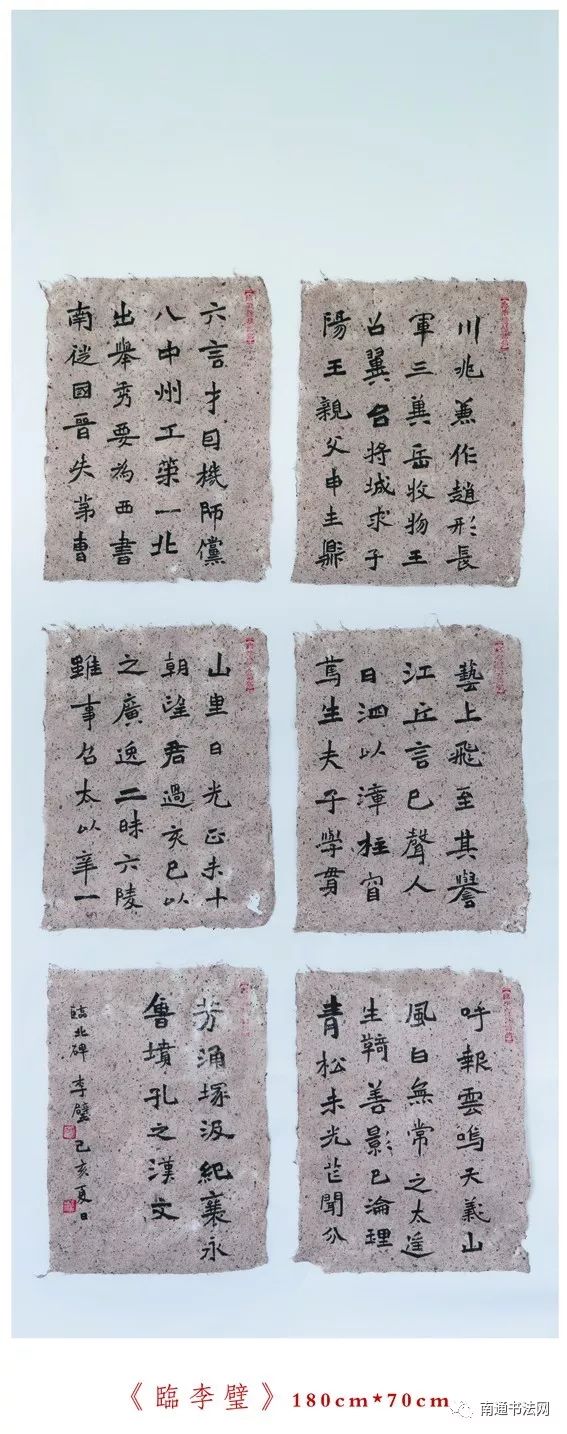 川兆兼作趙形長
軍三冀岳收物王
召翼台将城求子
陽王親父申主縣
六言才司機師儻
八中州工築一北
出舉秀要為西書
南從國晉失第曹
藝上飛至其譽
江丘言已聲人
日泗以漳柱窅
篤生夫子學貫
山里日光正未十
朝望君過亥巳以
之廣逸二昧六陵
雖事名太以辛一
呼報雲嗚天義山
風白無常之太遥
生善影已淪理
青松未光芒聞分
芳涌塚汲紀襄永
魯墳孔之漢文
臨北碑 李璧 己亥夏日
《臨李璧》180cm*70cm
南通书法网